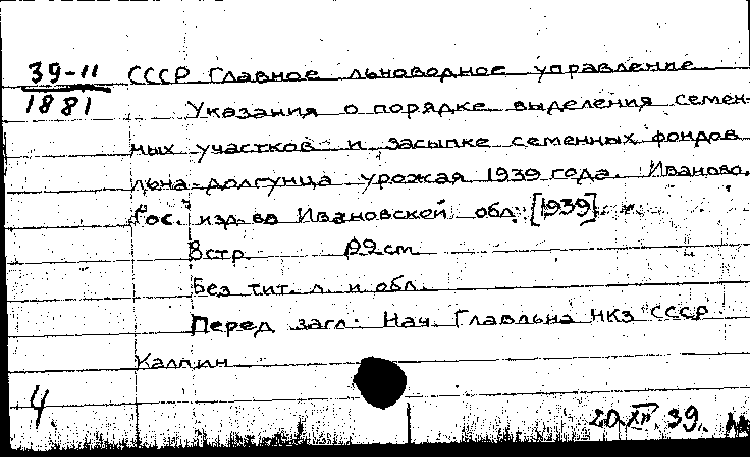 39-11
1881
СССР Главное льноводное управление
Указания о порядке выделения семен-
ных участков и засыпке семенных фондов
льна-долгунца урожая 1939 года. Иваново,
Гос. изд-во Ивановской обл. [1939]
8 стр. 22 cm
Без тит. л. и обл.
Перед загл. Нач. Главльна НКЗ СССР
Калпин
4
20.XII.39.